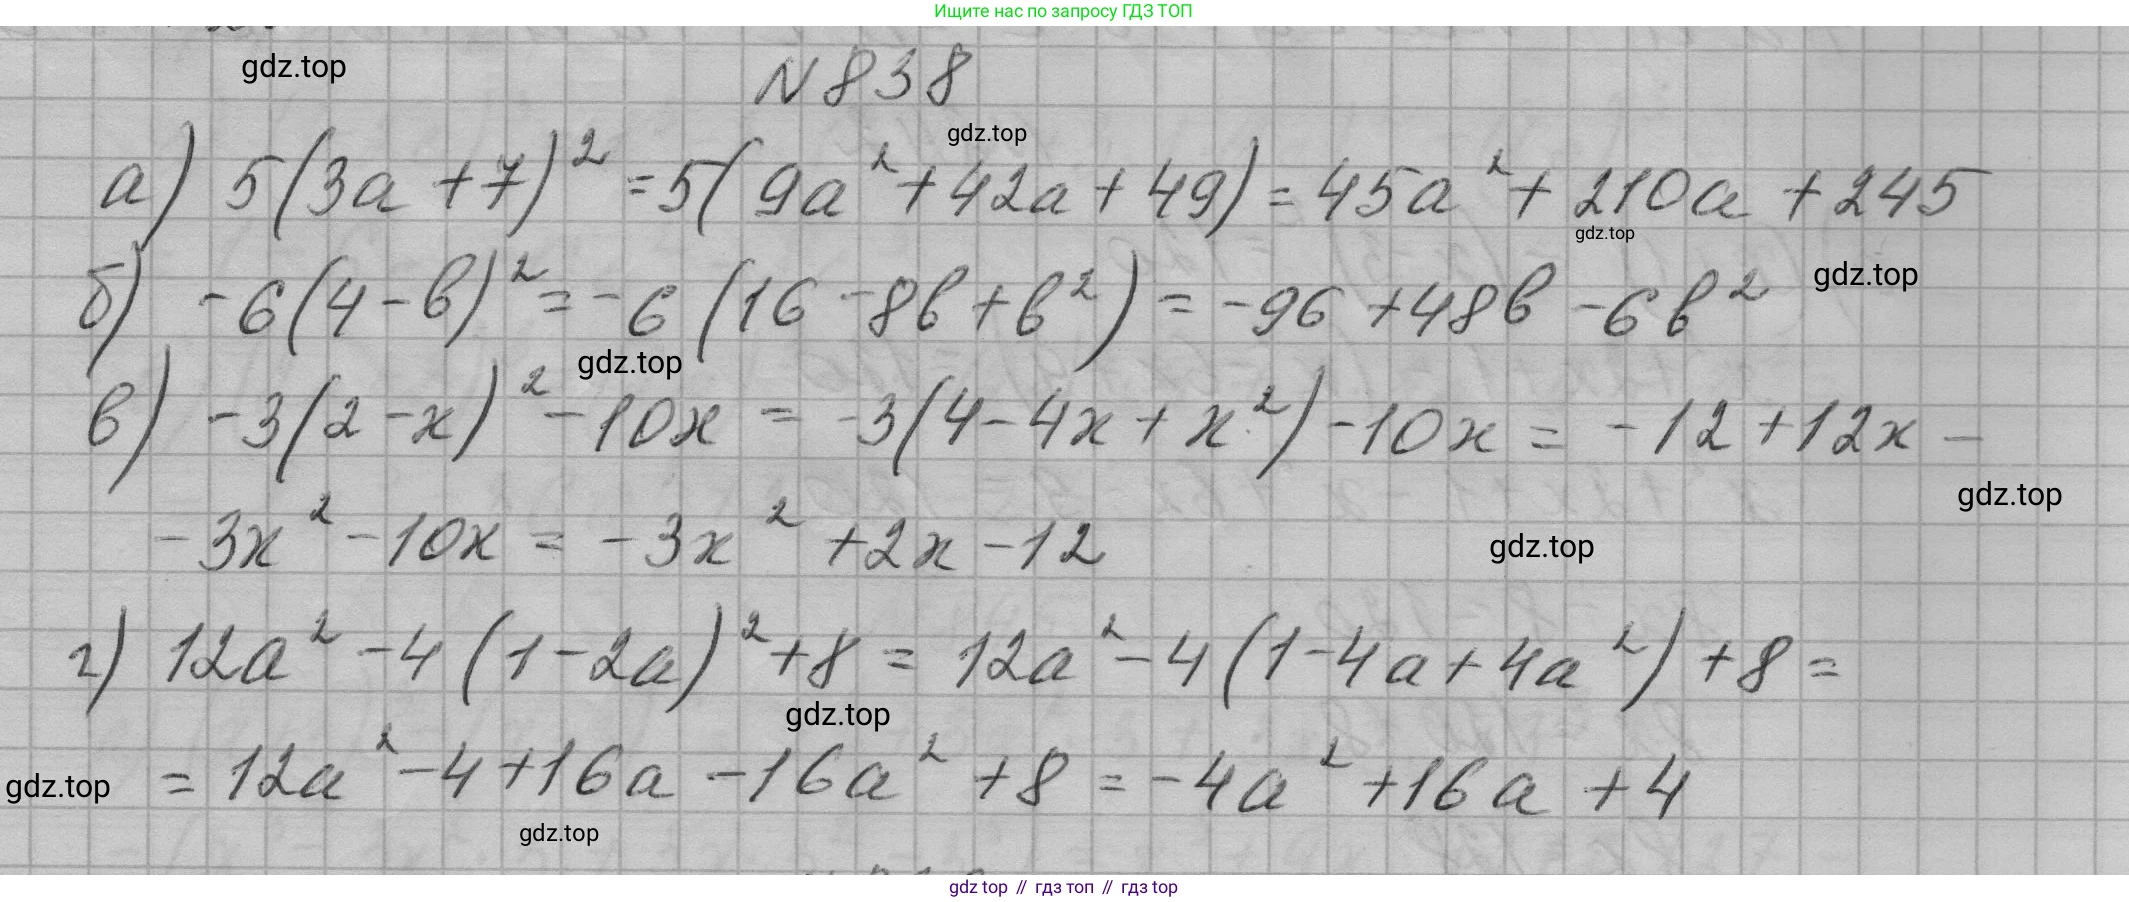 Ищите нас по запросу ГДЗ ТОП
gdz.top
N 838
gdz.top
а) 5(3a + 7)² = 5(9a² + 42a + 49) = 45a² + 210a + 245
gdz.top
б) -6(4 - b)² = -6(16 - 8b + b²) = -96 + 48b - 6b²
gdz.top
gdz.top
в) -3(2 - x)² - 10x = -3(4 - 4x + x²) - 10x = -12 + 12x -
gdz.top
- 3x² - 10x = -3x² + 2x - 12
gdz.top
г) 12a² - 4(1 - 2a)² + 8 = 12a² - 4(1 - 4a + 4a²) + 8 =
gdz.top
= 12a² - 4 + 16a - 16a² + 8 = -4a² + 16a + 4
gdz.top
gdz.top
gdz top // гдз топ // gdz top